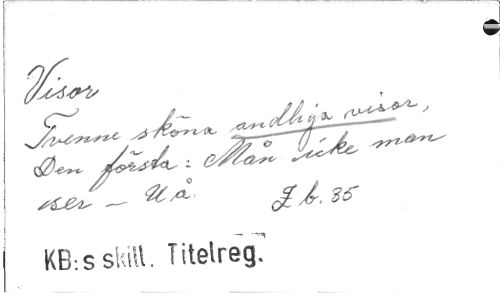 Visor
Tvenne sköna andliga visor,
Den första: Mån icke man
ser - U å. Z b. 35
KB:s skill. Titelreg.